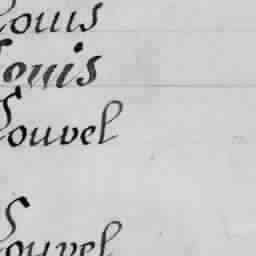 Louis
Louis
Louvel
Louvel